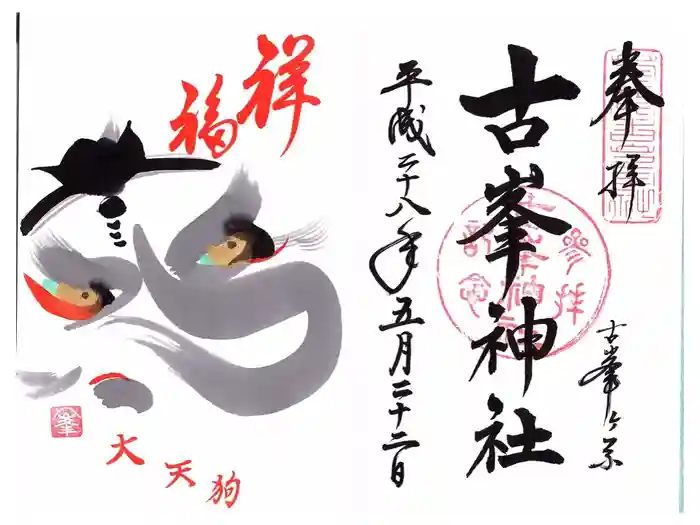 奉拝
古峯ヶ原
古峯神社
平成二十八年五月二十二日
祥
福
大天狗